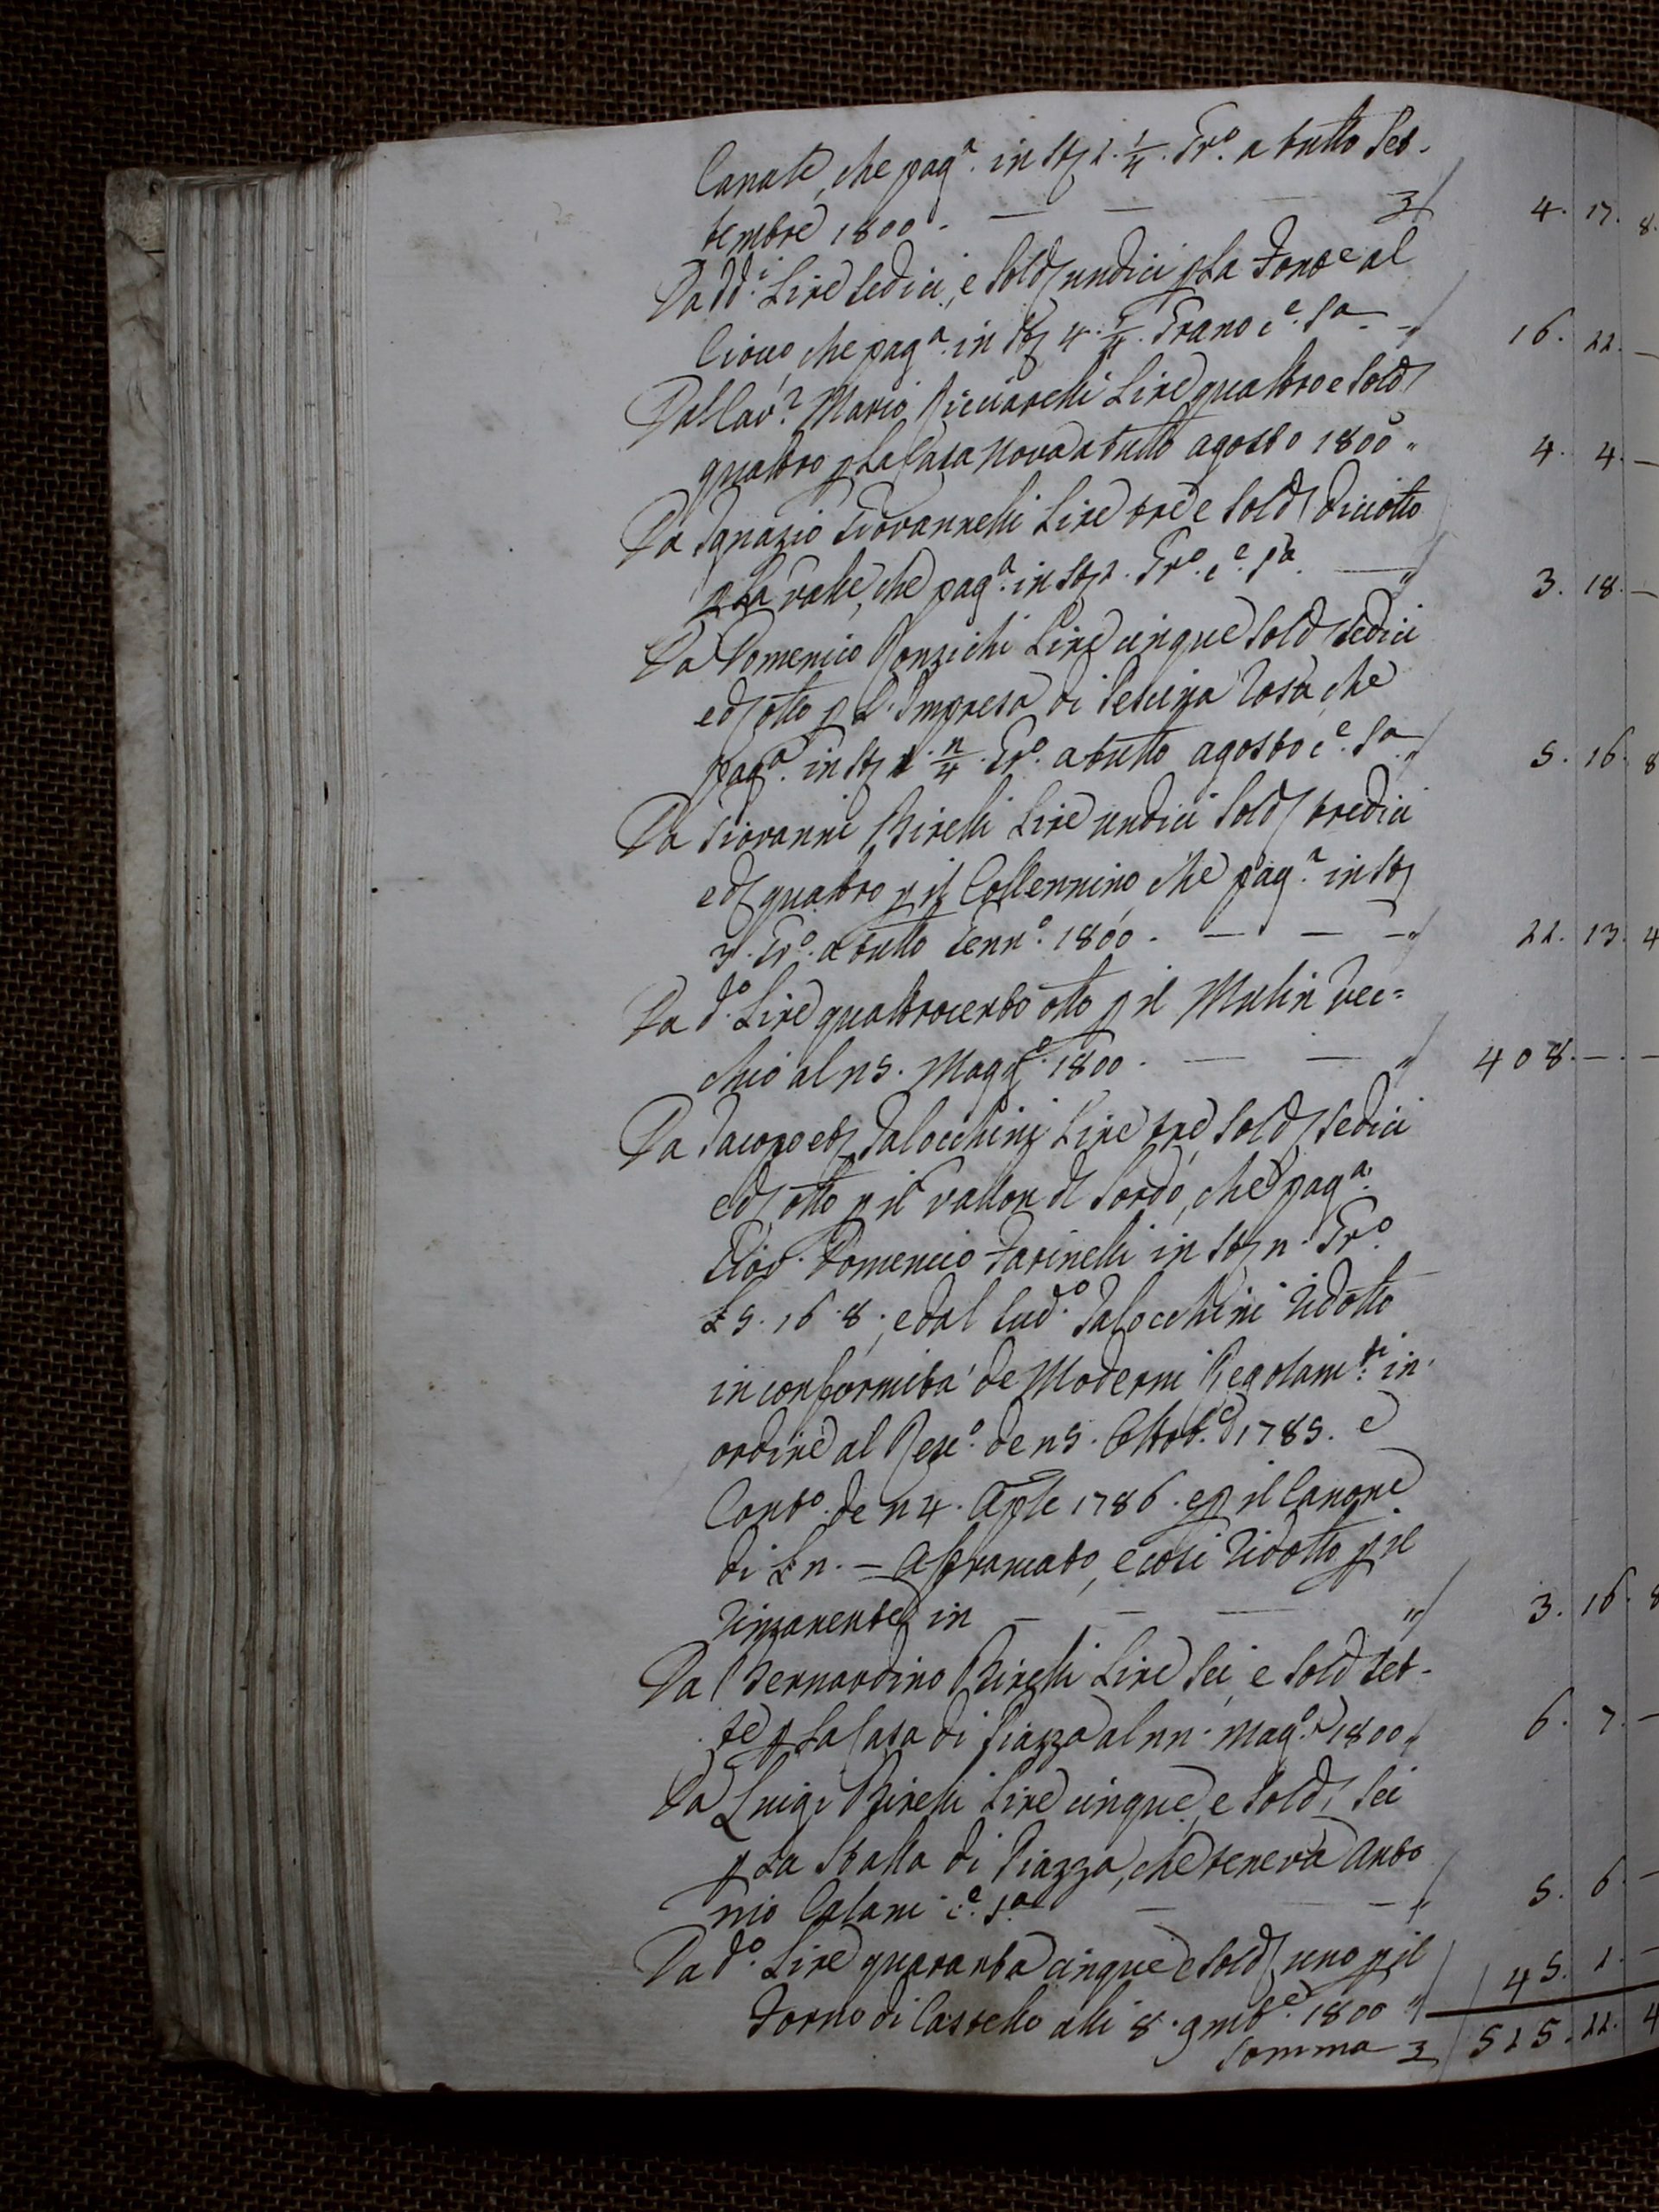 Canate, che pag.ª in St/ 2. 1/4. Gr.º a tutto Set-
tembre 1800 - — — 3/ 4. 17. 8.
Da dd.i Lire sedici, e Sold/ undici p La Fonte al
Ciouo, che pag.ª in St/ 4. Grano c.e S.a 16. 11. —
Dall'av.º Mario Ricciarelli Lire quattro e Sold/
quattro p La Casa nova a tutto agosto 1800 " 4. 4. —
Da Ignazio Giovannelli Lire tre e Sold/ diciotto
p La valle, che pag.ª in St/ 2. Gr.º c.e S.a — " 3. 18. —
Da Domenico Ronzichi Lire cinque Sold/ sedici
e d/ otto p L'Impresa di Pescina Rosa, che
pag.ª in St/ Gr.º a tutto agosto c.e S.a " 5. 16. 8
Da Giovanni Birelli Lire undici Sold/ tredici
e d/ quattro p il Collennino che pag.ª in St/
3. Gr.º a tutto Genn.º 1800 - — — — " 11. 13. 4
Da d.º Lire quattrocento otto p il Mulin vec=
chio al 15. Magg.º 1800 - — — " 408. — . —
Da Jacopo et/ Salocchini Lire tre, Sold/ sedici
e d/ otto p il vallon del Sordo, che pag.ª
Giov. Domenico Farinelli in St/ 1. Gr.º
£ 5. 16. 8. , e dal sud.º Salocchini ridotto
in conformità de Moderni Regolam.ti in
ordine al Resc.º de 15. Ottob.e 1785. e
Cont.º de 14. Aple 1786. e p il Canone
di £ 2. — Affrancato, e così ridotto p il
rimanente in — — — " 3. 16. 8
Da Bernardino Birelli Lire Sei, e Sold/ Set-
te p La Casa di Piazza al 11. Mag.º 1800 " 6. 7. —
Da Luigi Birelli Lire cinque, e Sold/ Sei
p La Stalla di Piazza, che teneva Anto
nio Calani c.e S.a — — " 5. 6. —
Da d.º Lire quaranta cinque e Sold/ uno p il
Forno di Castello alli 8. 9mb.e 1800 " 45. 1. —
Somma 3/ 525. 11. 4